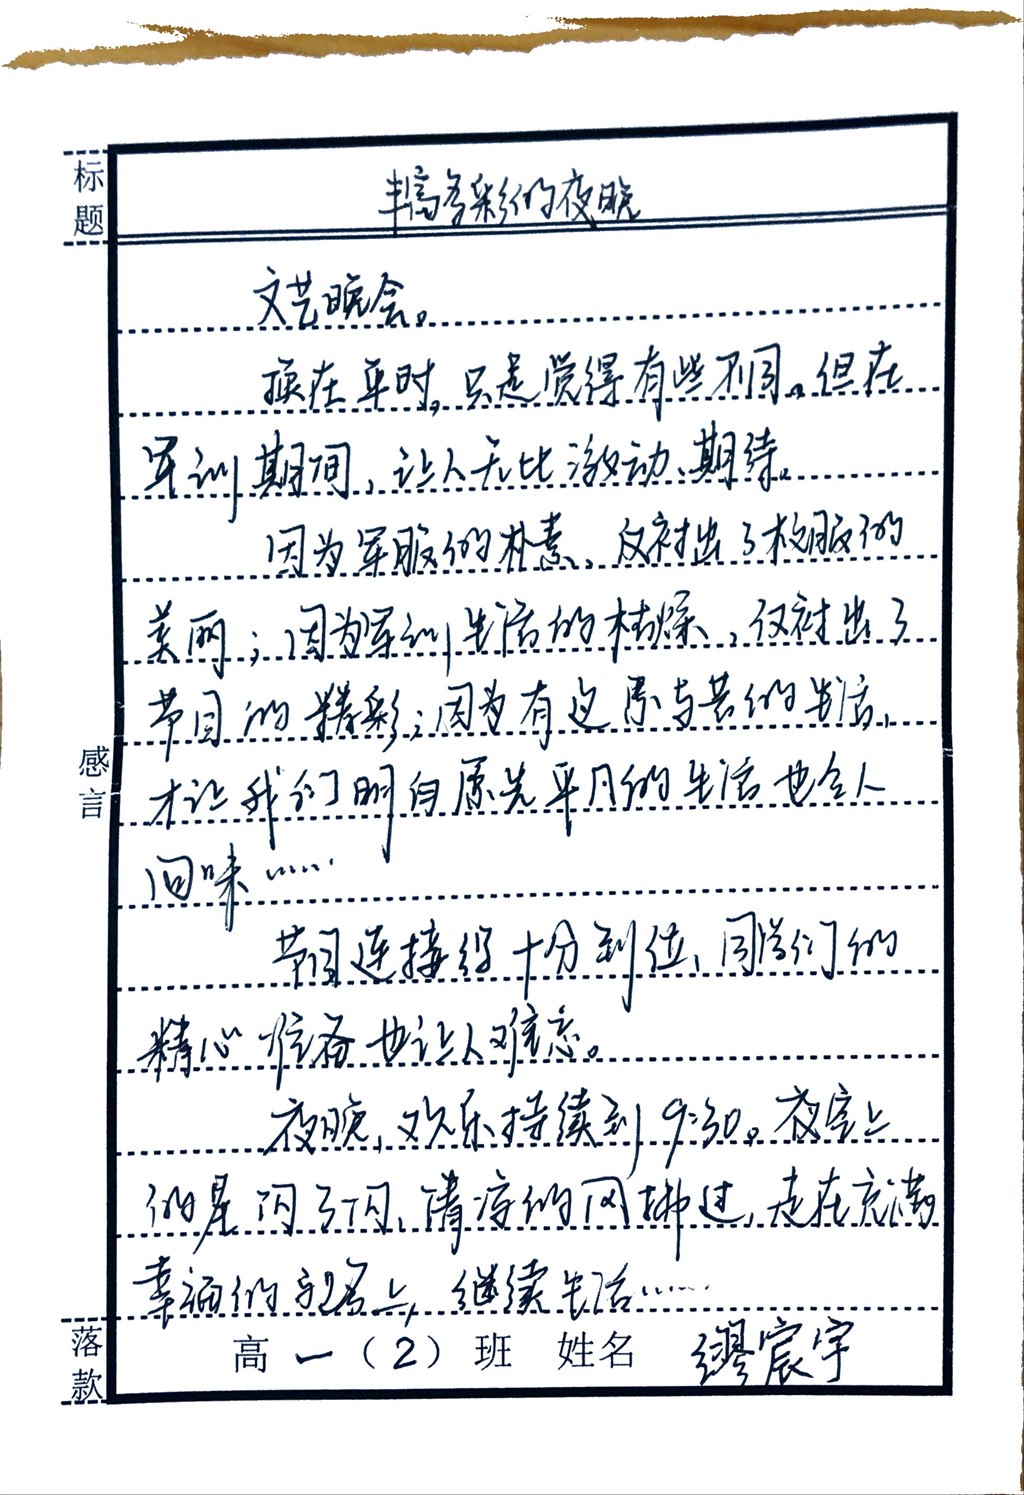 标题
丰富多彩的夜晚
文艺晚会。
换在平时,只是觉得有些不同。但在
军训期间,让人无比激动、期待。
因为军服的朴素,反衬出了校服的
美丽;因为军训生活的枯燥,反衬出了
节目的精彩;因为有这累与苦的生活,
才让我们明白原先平凡的生活也令人
回味……
感言
节目连接得十分到位,同学们的
精心准备也让人难忘。
夜晚,欢乐持续到9:30。夜空上
的星闪了闪,清凉的风拂过,走在充满
幸福的路上,继续生活……
落款
高一(2)班 姓名 缪宸宇